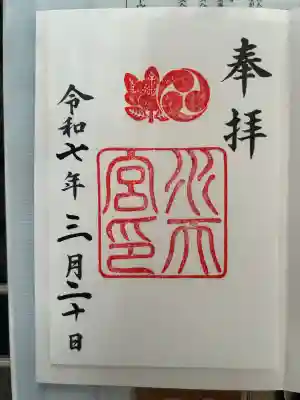 奉拝
水天宮印
令和七年三月二十日